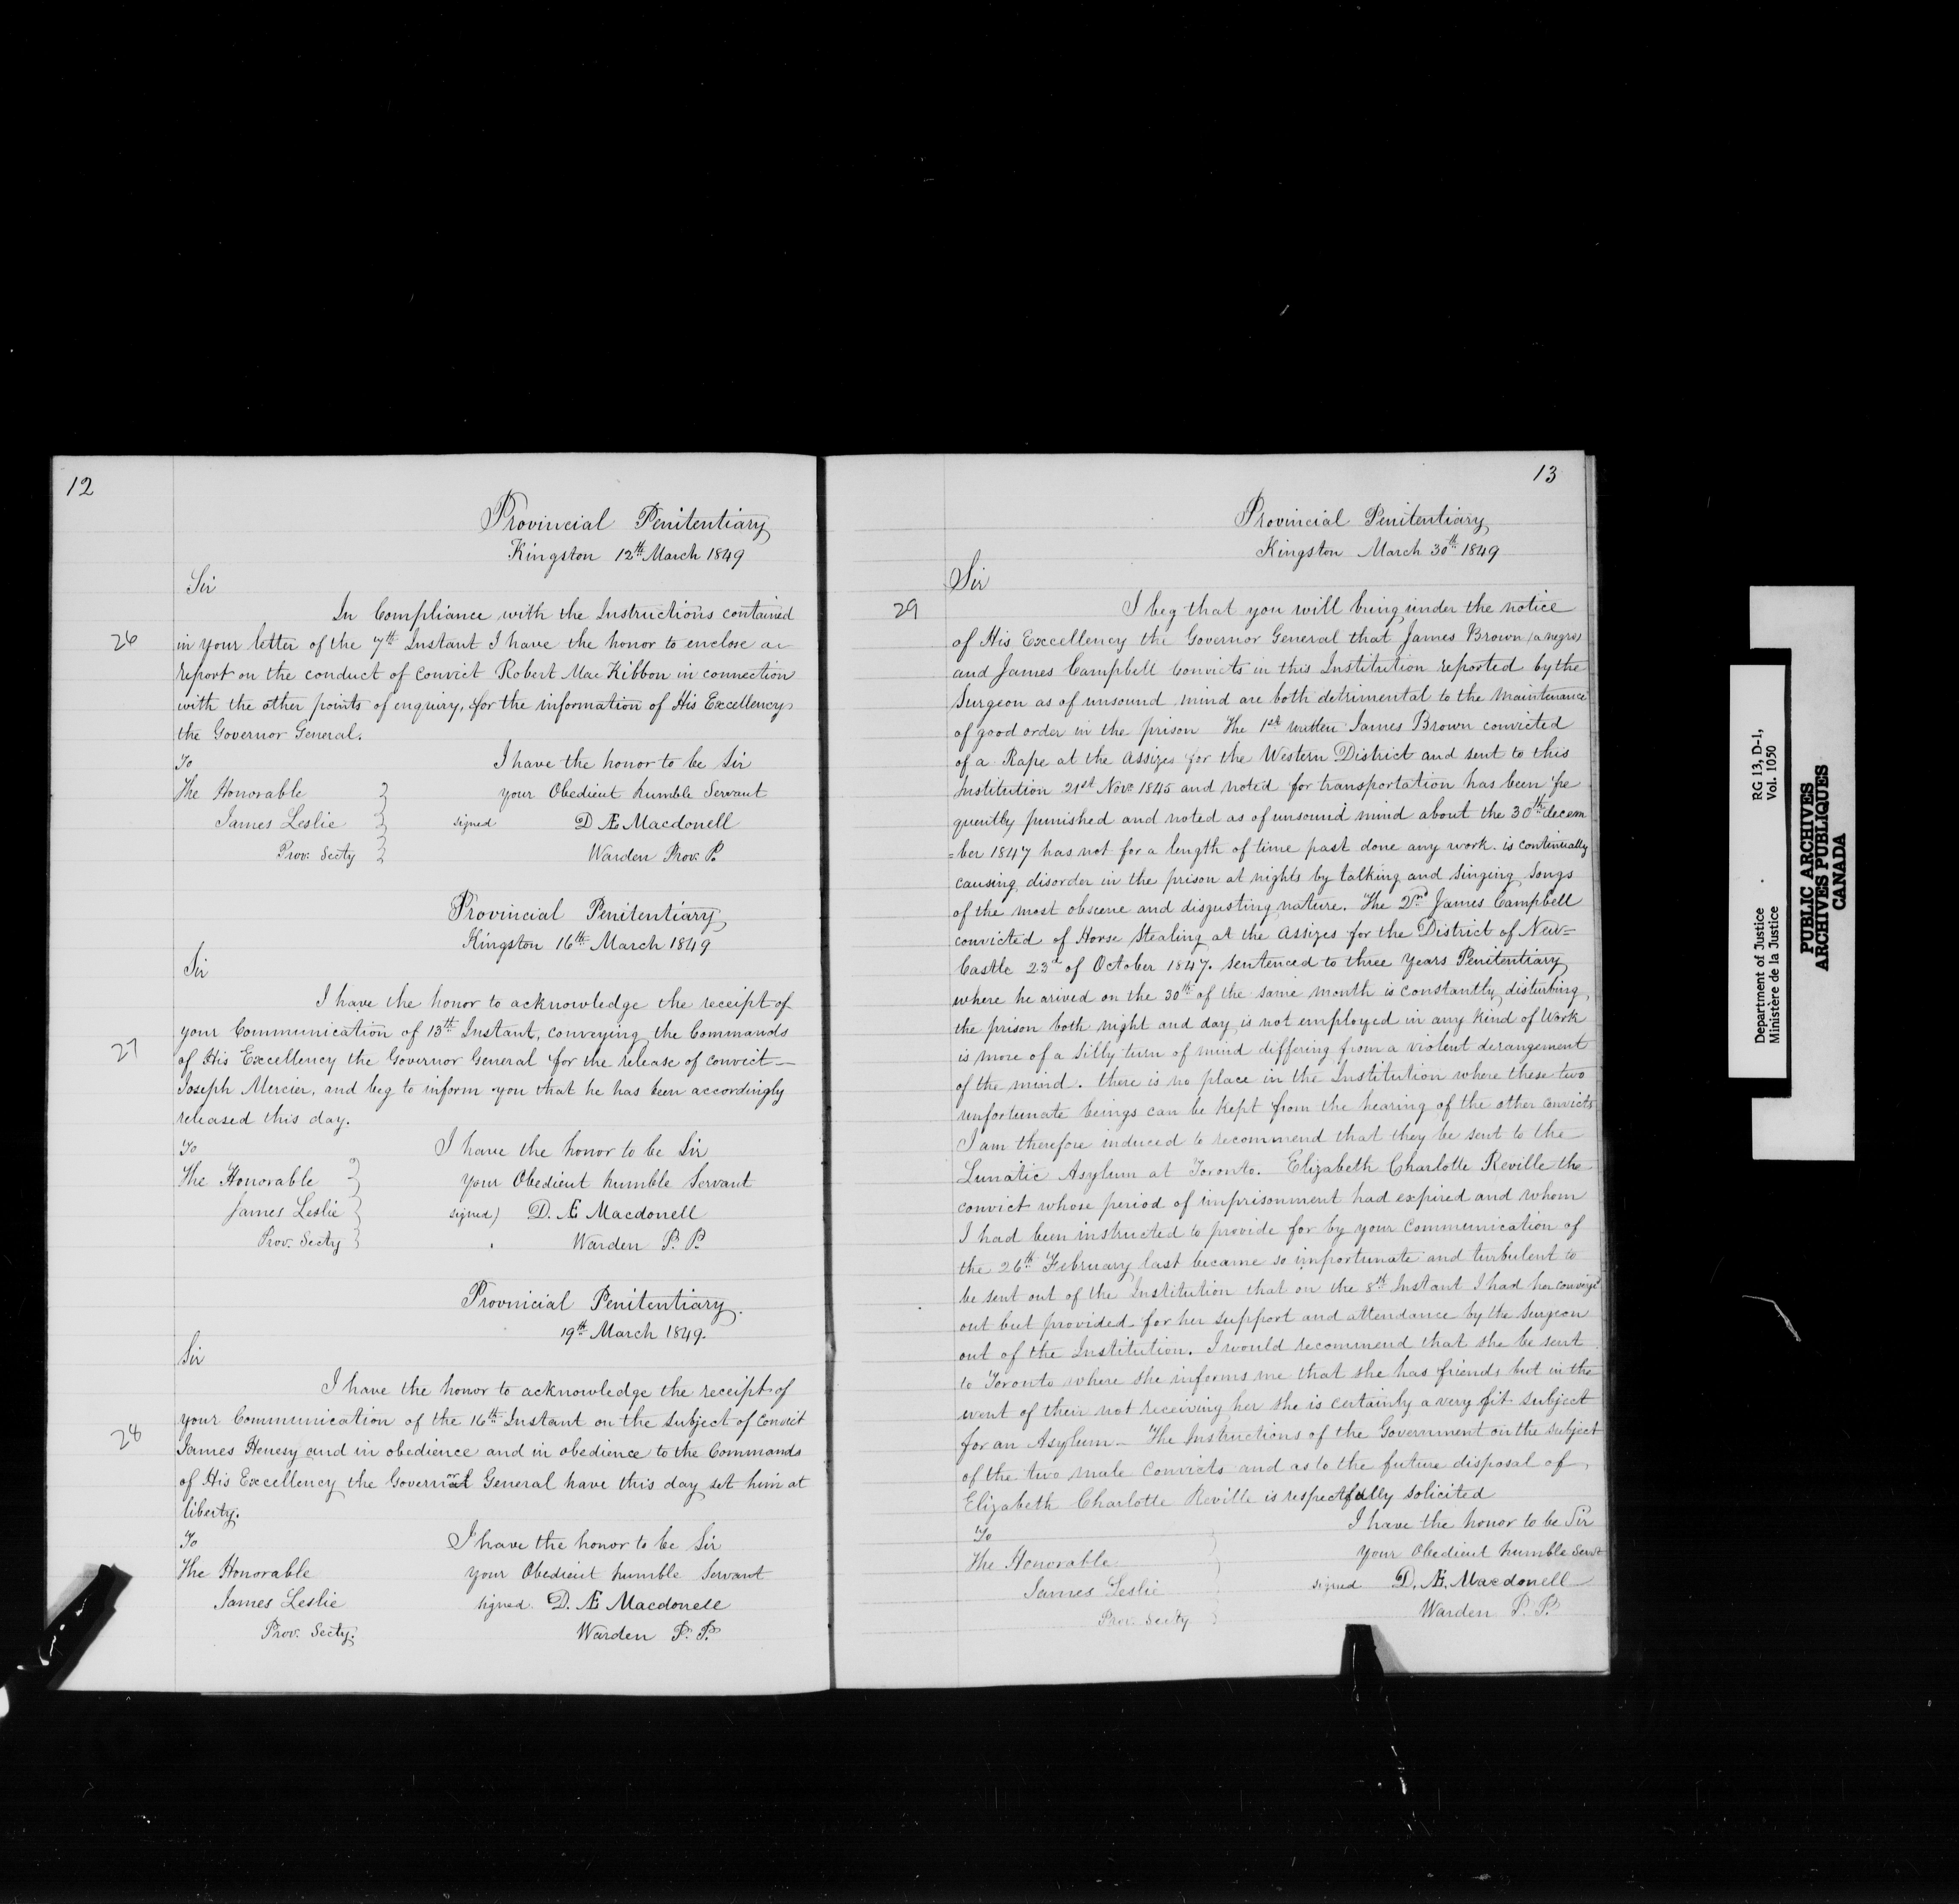 12
Provincial Penitentiary
Kingston 12th March 1849
Sir
In Compliance with the Instructions contained
26
in your letter of the 7th Instant I have the honor to enclose a
report on the conduct of convict Robert Mac Kibbon in connection
with the other points of enquiry, for the information of His Excellency
the Governor General.
To
I have the honor to be Sir
The Honorable
your Obedient humble Servant
James Leslie
signed D Æ Macdonell
Prov. Secty
Warden Prov. P.
Provincial Penitentiary
Kingston 16th March 1849
Sir
I have the honor to acknowledge the receipt of
your Communication of 13th Instant, conveying the Commands
27
of His Excellency the Governor General for the release of convict —
Joseph Mercier, and beg to inform you that he has been accordingly
released this day.
To
I have the honor to be Sir
The Honorable
your Obedient humble Servant
James Leslie
signed) D. Æ Macdonell
Prov. Secty
Warden P. P.
Provinicial Penitentiary.
19th March 1849.
Sir
I have the honor to acknowledge the receipt of
your Communication of the 16th Instant on the subject of Convict
28
James Henesy and in obedience and in obedience to the Commands
of His Excellency the Governor General have this day set him at
liberty.
To
I have the honor to be Sir
The Honorable
your Obedient humble Servant
James Leslie
signed. D. Æ Macdonell
Prov. Secty.
Warden P. P.
13
Provincial Penitentiary
Kingston March 30th 1849
Sir
29
I beg that you will bring under the notice
of His Excellency the Governor General that James Brown (a negro)
and James Campbell Convicts in this Institution reported by the
Surgeon as of unsound mind are both detrimental to the maintenance
of good order in the prison The 1st written James Brown convicted
of a Rape at the Assizes for the Western District and sent to this
Institution 21st Novr 1845 and noted for transportation has been fre
quently punished and noted as of unsound mind about the 30th decem
=ber 1847 has not for a length of time past done any work. is continually
causing disorder in the prison at nights by talking and singing songs
of the most obscene and disgusting nature. The 2nd James Campbell
convicted of Horse Stealing at the Assizes for the District of New=
Castle 23d of October 1847. sentenced to three Years Penitentiary
where he arived on the 30th of the same month is constantly disturbing,
the prison both night and day is not employed in any kind of Work
is more of a Silly turn of mind differing from a violent derangement
of the mind. there is no place in the Institution where these two
unfortunate beings can be Kept from the hearing of the other convicts
I am therefore induced to recommend that they be sent to the
Lunatic Asylum at Toronto. Elizabeth Charlotte Reville the
convict whose period of imprisonment had expired and whom
I had been instructed to provide for by your Communication of
the 26th February last became so importunate and turbulent to
be sent out of the Institution that on the 8th Instant I had her
out but provided for her support and attendance by the Surgeon
out of the Institution. I would recommend that she be sent
to Toronto where she informs me that she has friends but in the
event of their not receiving her she is certainly a very fit subject
for an Asylum — The Instructions of the Government on the subject
of the two male Convicts and as to the future disposal of
Elizabeth Charlotte Reville is respectfully solicited
To
I have the honor to be Sir
The Honorable
Your Obedient humble Servt
James Leslie
signed D. Æ. Macdonell
Prov. Secty
Warden P. P.
Department of Justice RG 13, D-1,
Ministère de la Justice Vol. 1050
PUBLIC ARCHIVES
ARCHIVES PUBLIQUES
CANADA